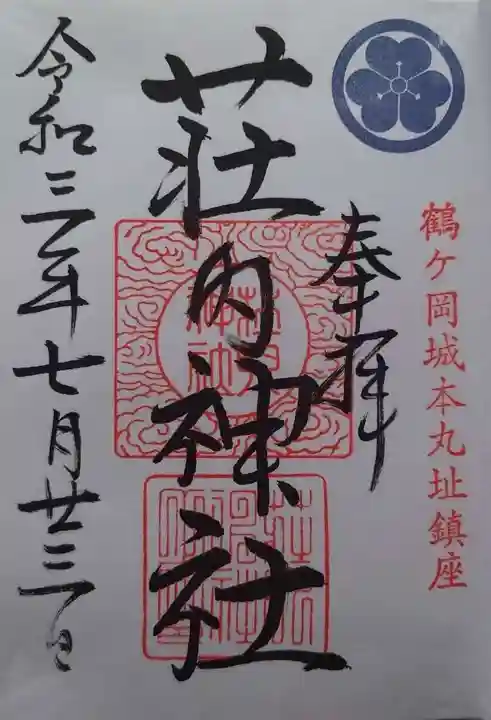 鶴ヶ岡城本丸址鎮座
奉拝
荘内神社
令和三年七月廿三日